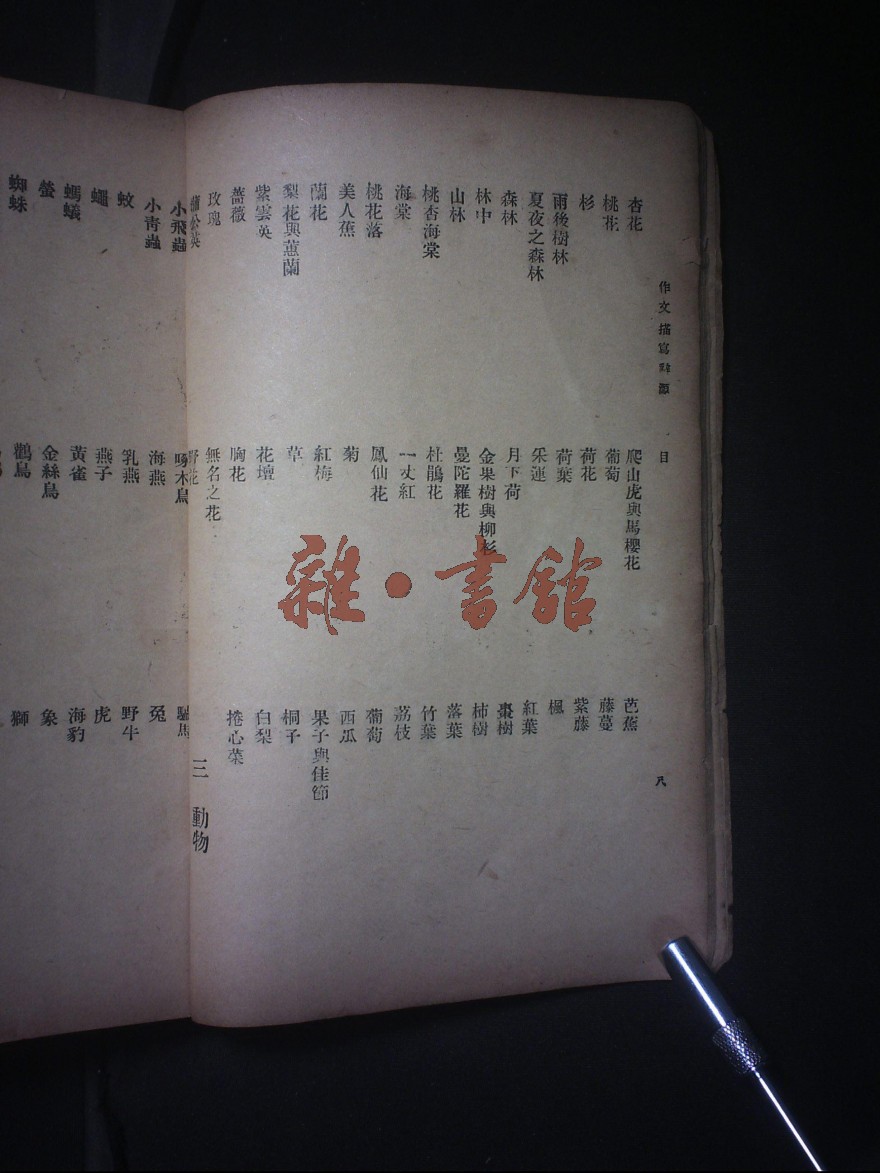 作文描寫辭源
目
杏花
桃花
杉
雨後樹林
夏夜之森林
森林
林中
山林
桃杏海棠
海棠
桃花落
美人蕉
蘭花
梨花與蕙蘭
紫雲英
薔薇
玫瑰
蒲公英
爬山虎與馬櫻花
葡萄
荷花
荷葉
采蓮
月下荷
金果樹與柳杉
曼陀羅花
杜鵑花
一丈紅
鳳仙花
菊
紅梅
草
花壇
胸花
無名之花
野花
芭蕉
藤蔓
紫藤
楓
紅葉
棗樹
柿樹
落葉
竹葉
荔枝
葡萄
西瓜
果子與佳節
桐子
白梨
捲心菜
三 動物
小飛蟲
小青蟲
蚊
蠅
螞蟻
螢
蜘蛛
啄木鳥
海燕
乳燕
燕子
黃雀
金絲鳥
鸛鳥
驢馬
兔
野牛
虎
海豹
象
獅
雜·書館